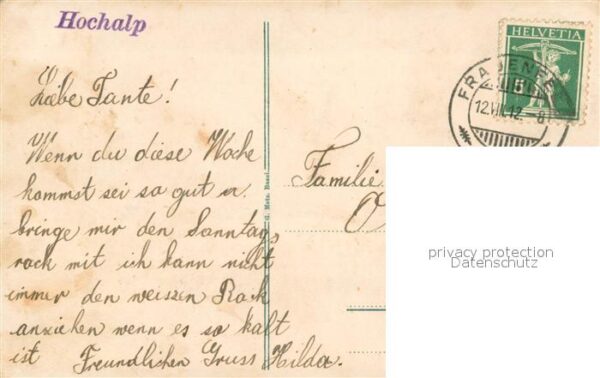 Hochalp
HELVETIA
5
FRAUENFELD
12.VII.12.-8
Liebe Tante!
Wenn du diese Woche
kommst sei so gut u.
bringe mir den Sonntags
rock mit ich kann nicht
immer den weiszen Rock
anziehen wenn es so kalt
ist Freundlichen Gruss Hilda.
G. Metz, Basel
Familie
privacy protection
Datenschutz